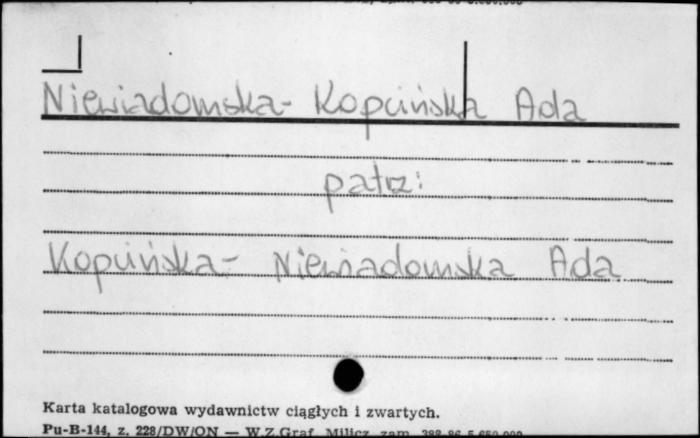 Niewiadomska- Kopcińska Ada
patrz:
Kopcińska- Niewiadomska Ada
Karta katalogowa wydawnictw ciągłych i zwartych.
Pu-B-144, z. 228/DW/ON — W.Z.Graf. Milicz, zam.